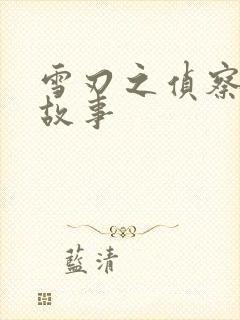 雪刃之偵察
故事
藍清